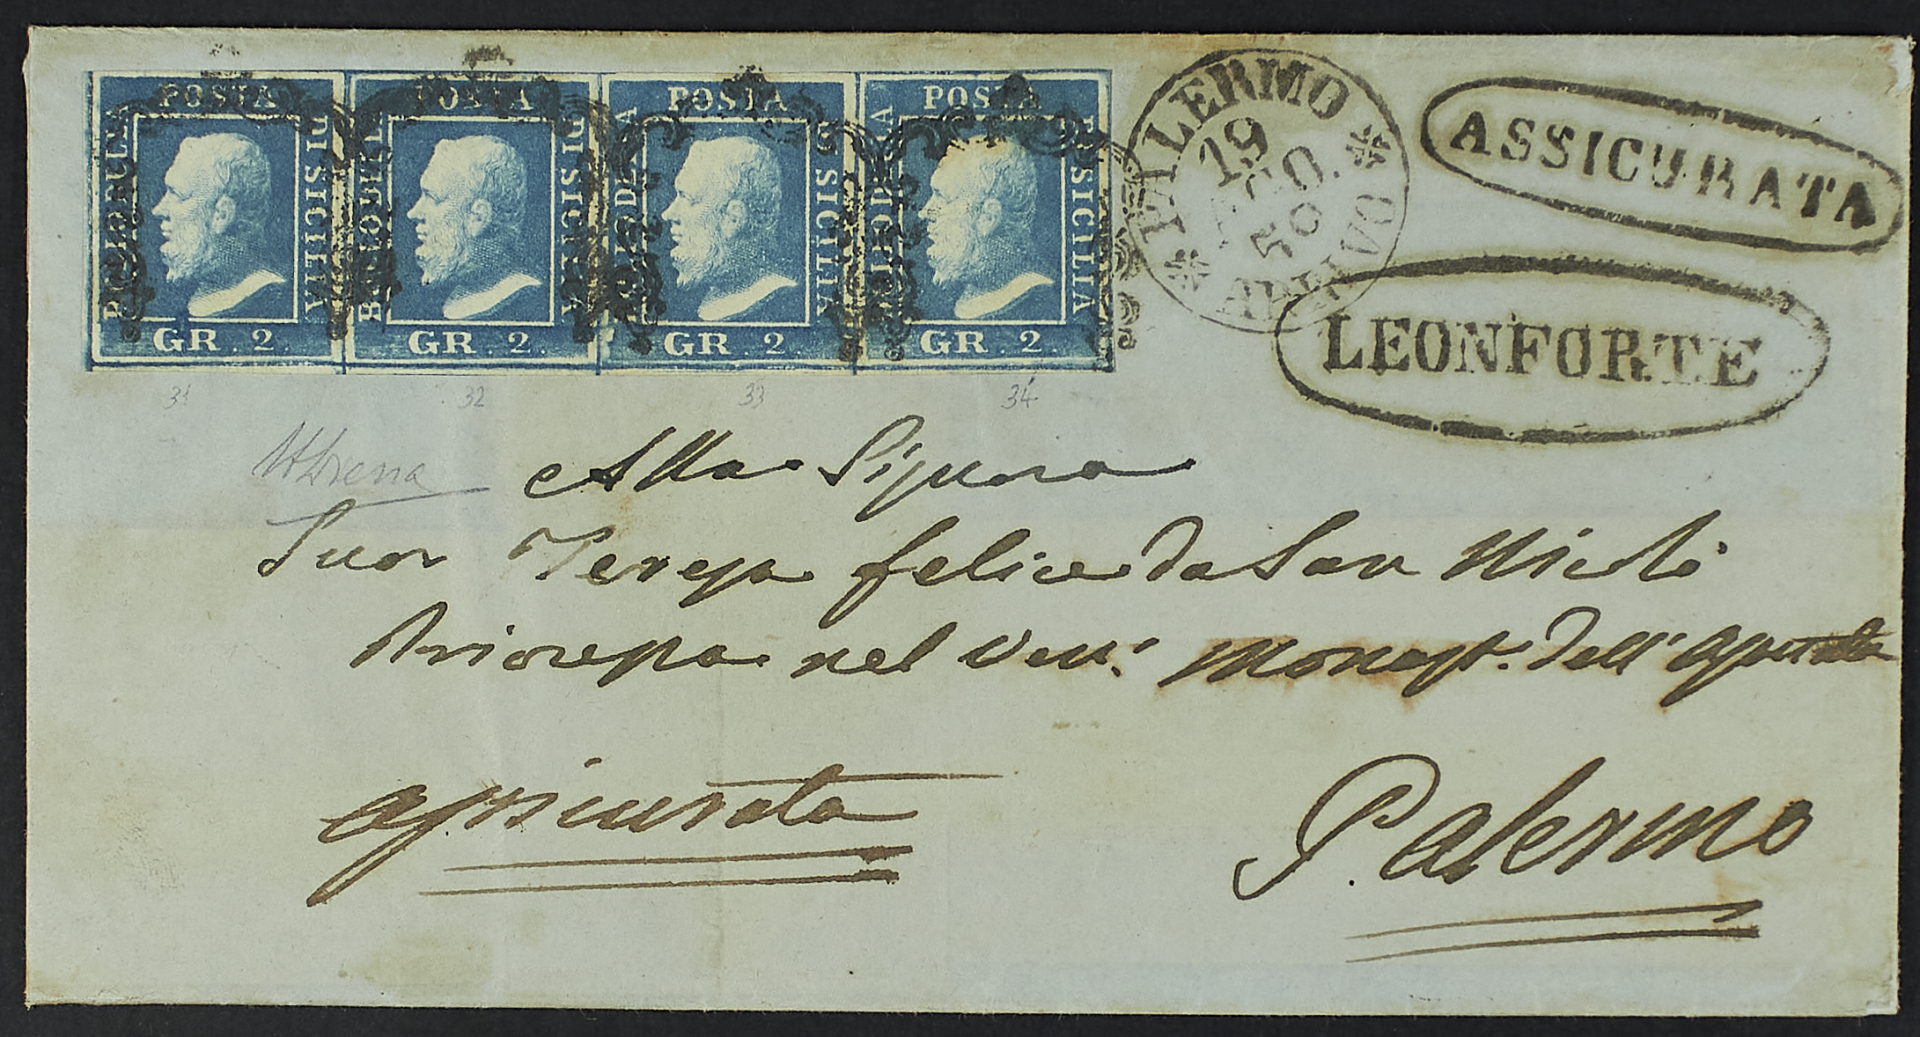 POSTA BOLLO DELLA DI SICILIA GR. 2.
POSTA BOLLO DELLA DI SICILIA GR. 2.
POSTA BOLLO DELLA DI SICILIA GR. 2.
POSTA BOLLO DELLA DI SICILIA GR. 2.
PALERMO
19
AGO.
59
ARRIVO
ASSICURATA
LEONFORTE
31 32 33 34
Alla Signora
Suor Teresa Felice da San Nicolò
Prioressa nel Ven. Monast. dell'
assicurata
Palermo